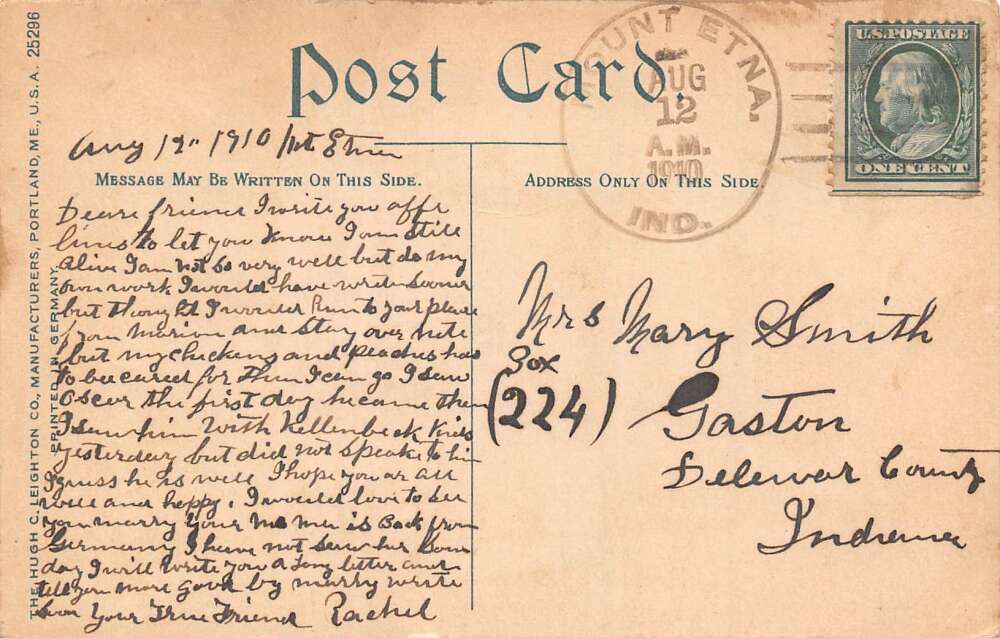 Post Card.
MOUNT ETNA.
AUG
12
A.M.
1910
IND.
U.S. POSTAGE
ONE CENT
THE HUGH C. LEIGHTON CO., MANUFACTURERS, PORTLAND, ME., U.S.A. 25296
PRINTED IN GERMANY.
Aug 12" 1910 Mt Etna
MESSAGE MAY BE WRITTEN ON THIS SIDE.
ADDRESS ONLY ON THIS SIDE.
Deare friend I write you a
lines to let you know I am still
alive I am not so very well but do my
own work I would have writen sooner
but thought I would Run to your place
from Marion and stay over nite
but my chickens and peaches has
to be cared for then I can go I saw
Oscer the first day he came then
I saw him with Kids
yesterday but did not speake to him
I guss he is well I hope you ar all
well and heppy. I would love to see
you marry your is Back from
Germany I have not saw her Some
day I will write you a Long letter and
tell you more good by marry write
soon Your True Friend Rachel
Mrs Mary Smith
Box
(224)
Gaston
Delewar County
Indiana